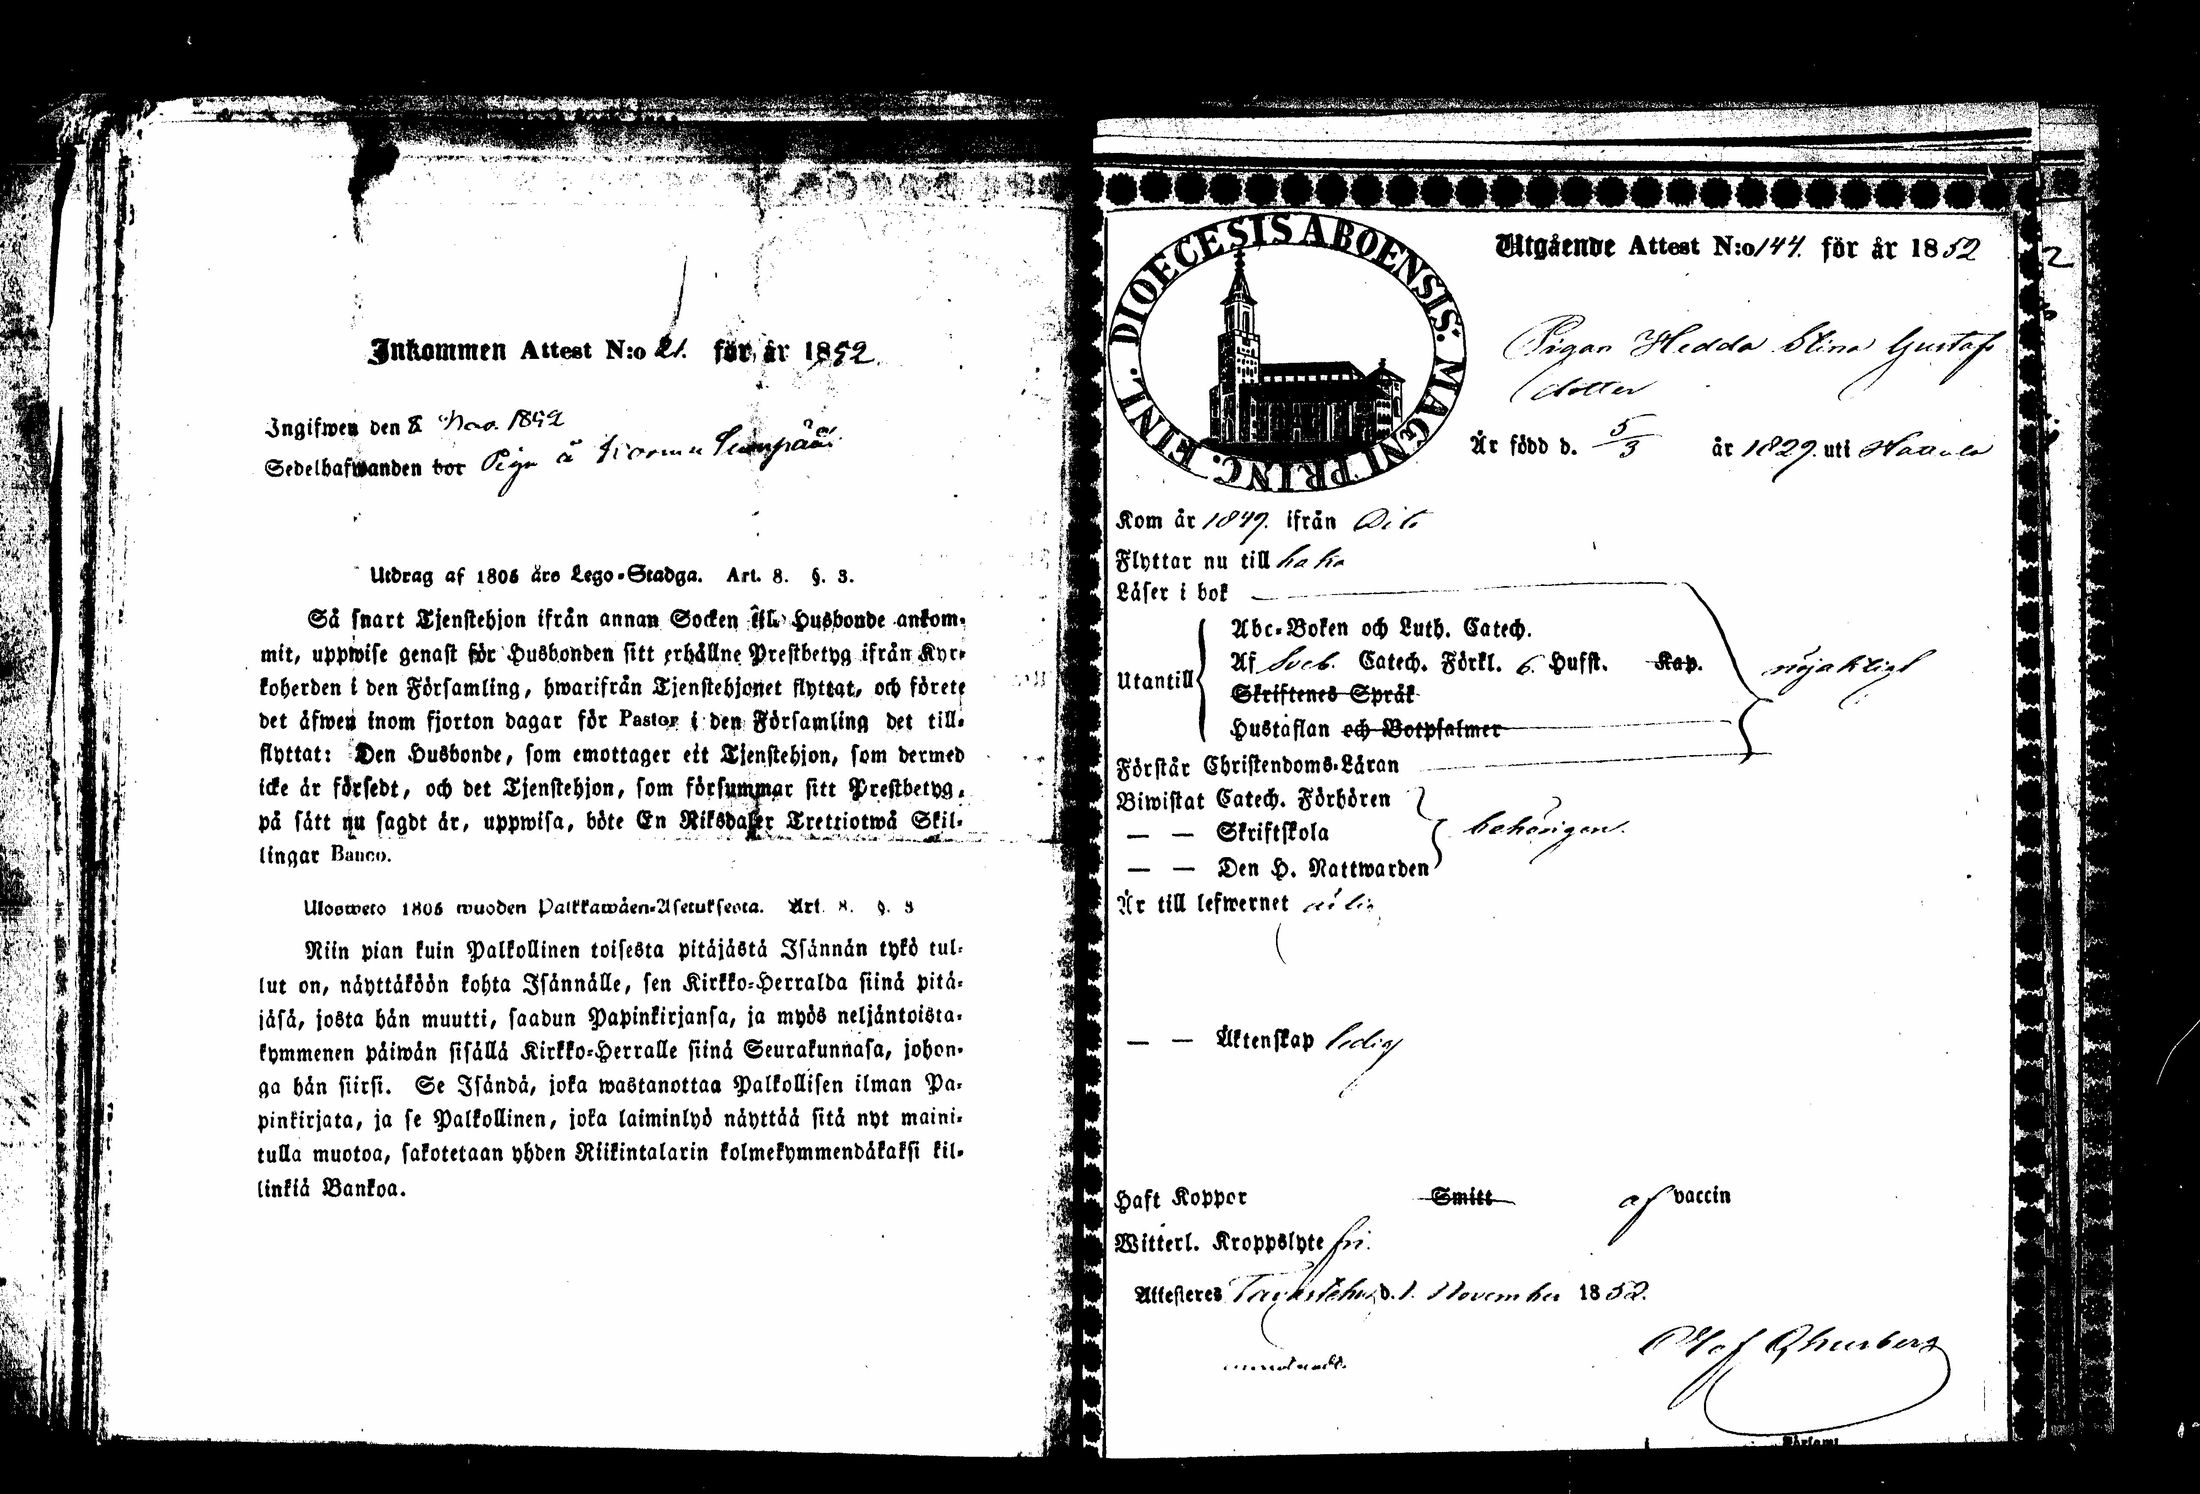 Inkommen Attest N:o 21. för år 1852.
Ingifwen den 8 Nov. 1852
Sedelhafwanden bor Piga å
Utdrag af 1805 års Lego-Stadga. Art. 8. §. 3.
Så snart Tjenstehjon ifrån annan Socken til Husbonde ankom-
mit, uppwise genast för Husbonden sitt erhållne Prestbetyg ifrån Kyr-
koherden i den Församling, hwarifrån Tjenstehjonet flyttat, och förete
det äfwen inom fjorton dagar för Pastor i den Församling det till-
flyttat: Den Husbonde, som emottager ett Tjenstehjon, som dermed
icke är försedt, och det Tjenstehjon, som försummar sitt Prestbetyg,
på sätt nu sagdt är, uppwisa, böte En Riksdaler Trettiotwå Skil-
lingar Banco.
Ulosweto 1805 wuoden Palkkawäen-Asetuksesta. Art. 8. §. 3
Niin pian kuin Palkollinen toisesta pitäjästä Isännän tykö tul-
lut on, näyttäköön kohta Isännälle, sen Kirkko-Herralda siinä pitä-
jäsä, josta hän muutti, saadun Papinkirjansa, ja myös neljäntoista-
kymmenen päiwän sisällä Kirkko-Herralle siinä Seurakunnasa, johon-
ga hän siirsi. Se Isändä, joka wastanottaa Palkollisen ilman Pa-
pinkirjata, ja se Palkollinen, joka laiminlyö näyttää sitä nyt maini-
tulla muotoa, sakotetaan yhden Riikintalarin kolmekymmendäkaksi kil-
linkiä Bankoa.
DIOECESIS ABOENSIS. MAGNI PRINC. FINL.
Utgående Attest N:o 144. för år 1852
Pigan Hedda Stina Gustafs
dotter
Är född d. 5/3 år 1829. uti Hattula
Kom år 1849. ifrån Dito
Flyttar nu till
Läser i bok
Abc-Boken och Luth. Catech.
Utantill Af Sveb. Catech. Förkl. 6. Hufst. Kap. nöjaktigt
Skriftenes Språk
Hustaflan och Botpsalmer
Förstår Christendoms-Läran
Biwistat Catech. Förhören
— — Skriftskola behörigen.
— — Den H. Nattwarden
Är till lefwernet
— — Äktenskap ledig
Haft Koppor Smitt af vaccin
Witterl. Kroppslyte fri.
Attesteres Tavastehus d. 1. November 1852.